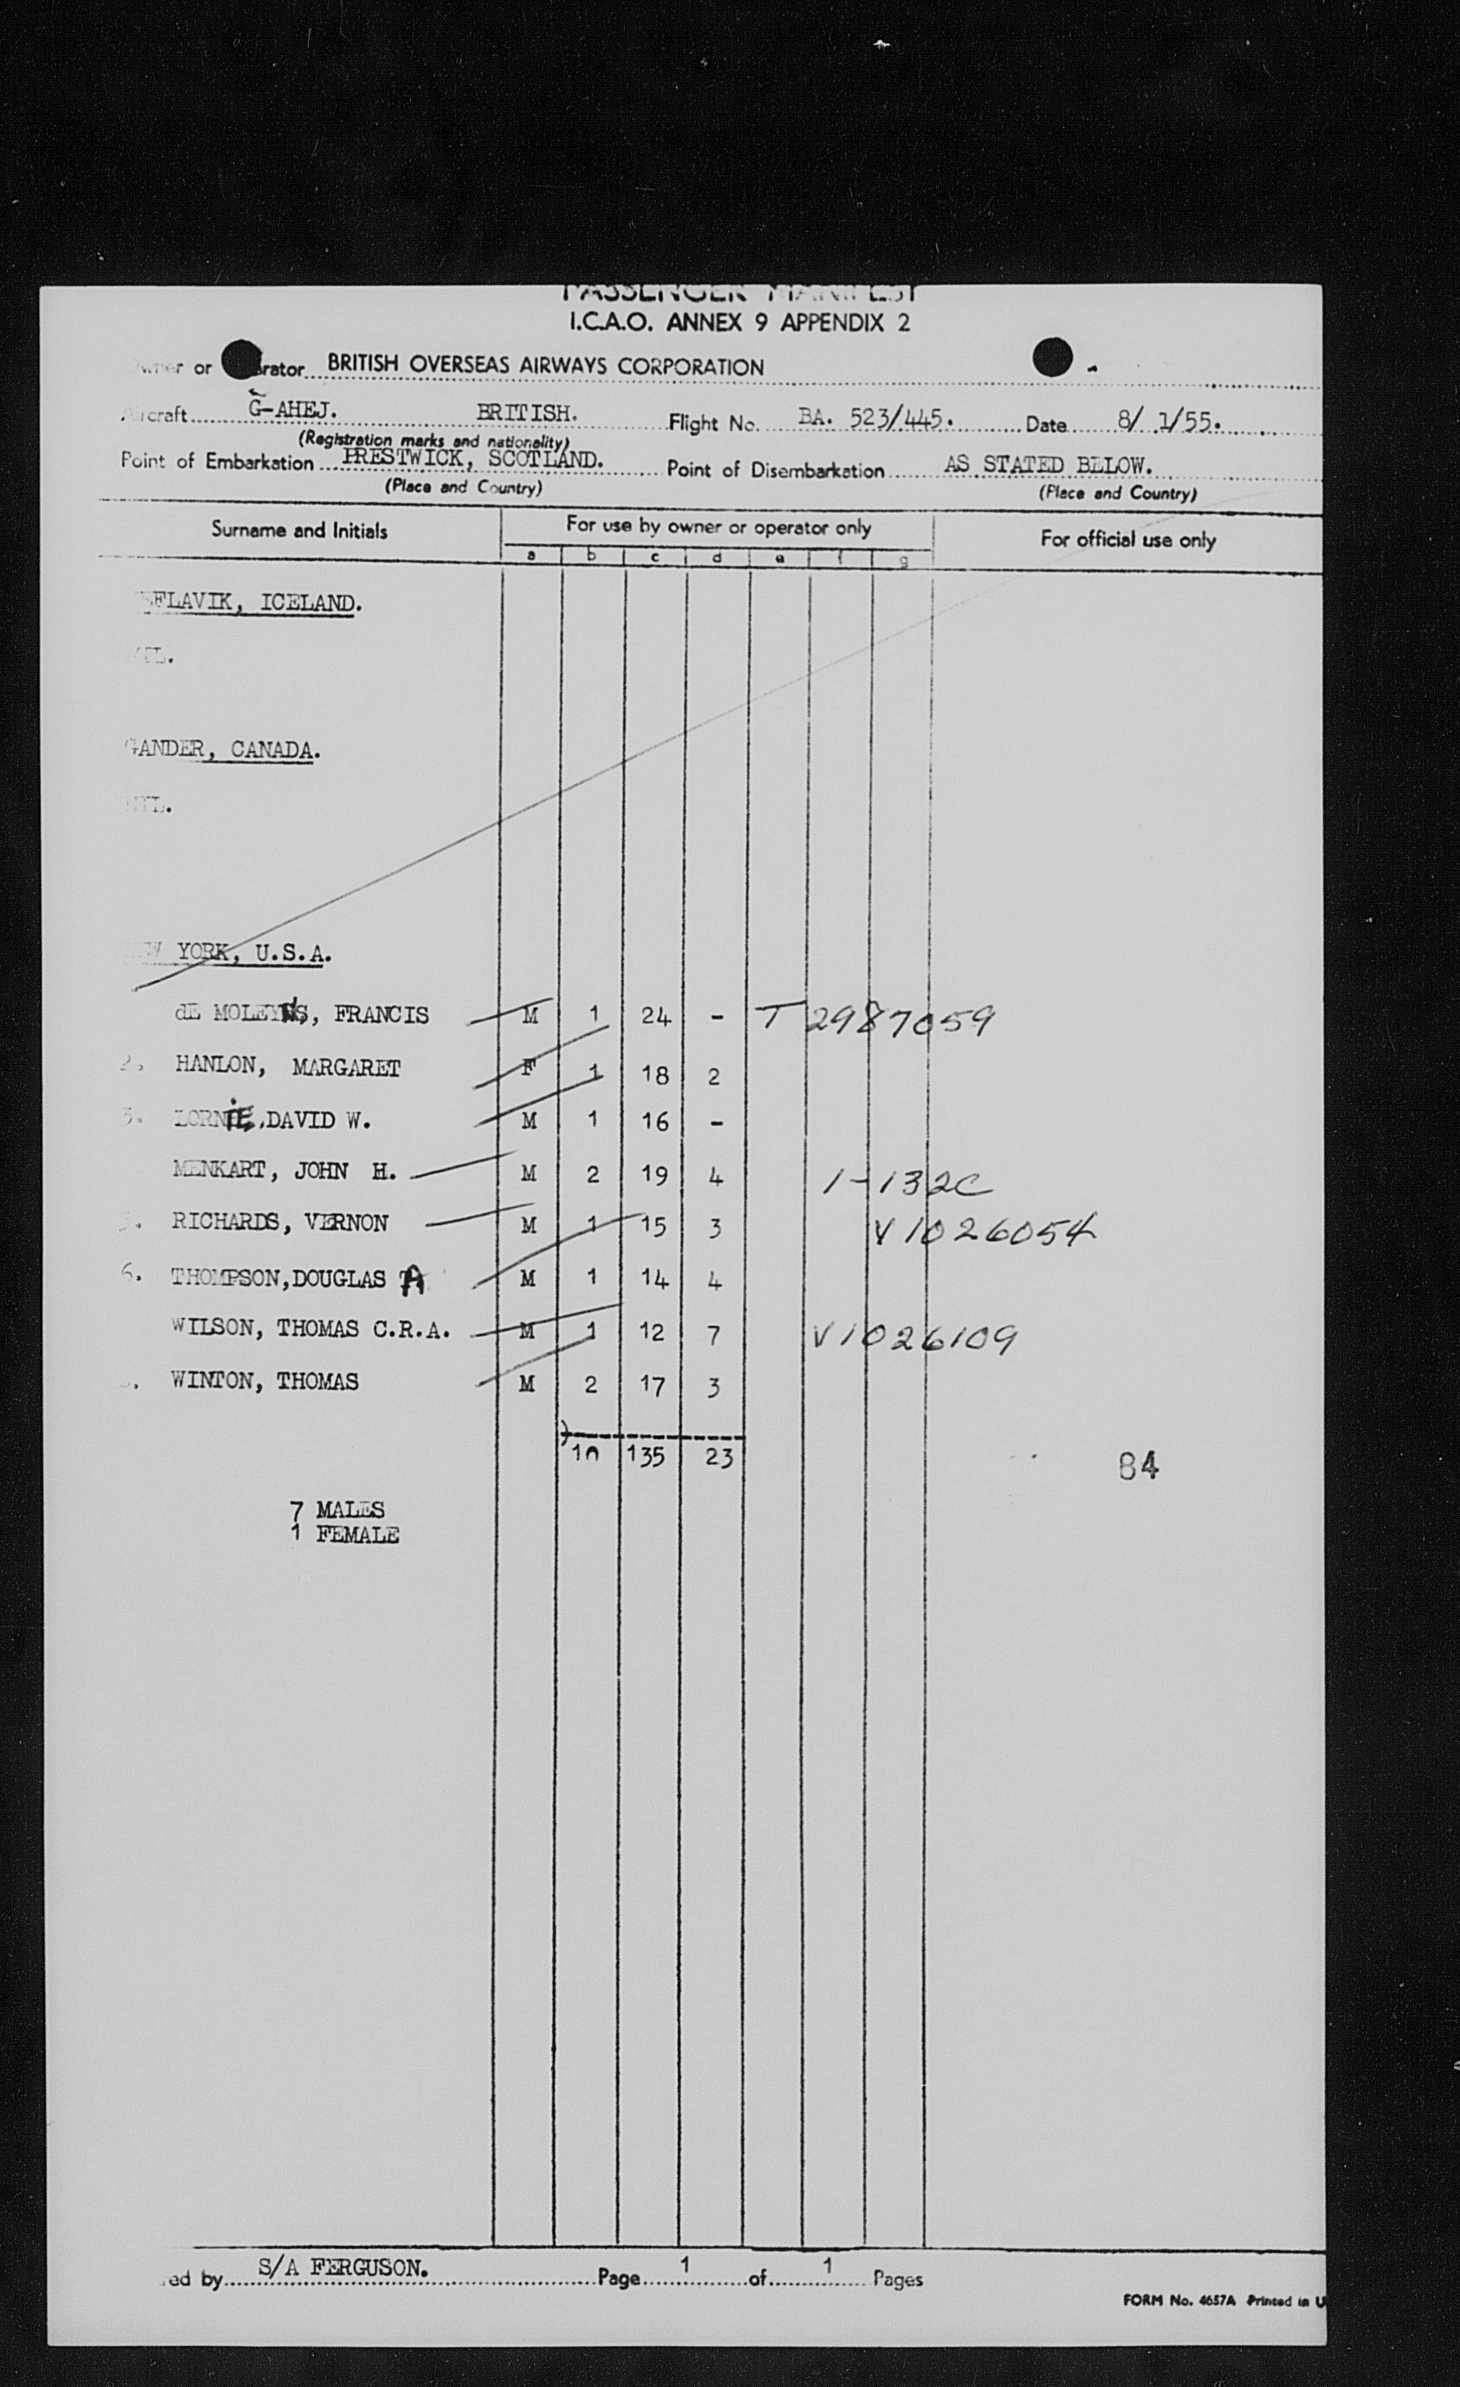 PASSENGER MANIFEST
I.C.A.O. ANNEX 9 APPENDIX 2
Owner or rator BRITISH OVERSEAS AIRWAYS CORPORATION
Aircraft G-AHEJ. BRITISH. Flight No. BA. 523/445. Date 8/ 1/55.
(Registration marks and nationality)
Point of Embarkation PRESTWICK, SCOTLAND. Point of Disembarkation AS STATED BELOW.
(Place and Country) (Place and Country)
Surname and Initials For use by owner or operator only For official use only
a b c d e f g
EFLAVIK, ICELAND.
NIL.
GANDER, CANADA.
NIL.
NEW YORK, U.S.A.
dE MOLEYNS, FRANCIS M 1 24 - T 2987059
2. HANLON, MARGARET F 1 18 2
3. LORNIE, DAVID W. M 1 16 -
MENKART, JOHN H. M 2 19 4 1-132C
5. RICHARDS, VERNON M 1 15 3 V1026054
6. THOMPSON, DOUGLAS A M 1 14 4
WILSON, THOMAS C.R.A. M 1 12 7 V1026109
. WINTON, THOMAS M 2 17 3
10 135 23
84
7 MALES
1 FEMALE
ed by S/A FERGUSON. Page 1 of 1 Pages
FORM No. 4657A Printed in U